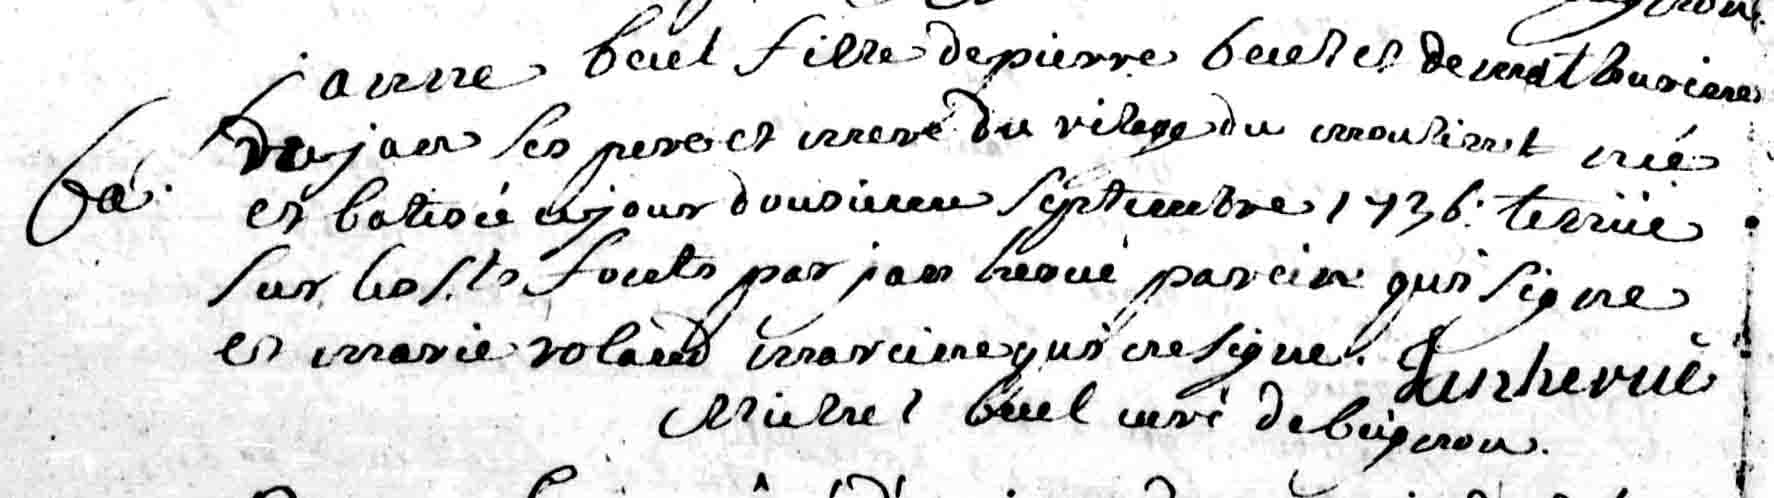 janne buel fille de pierre buel et de mathurine
dujan ses pere et mere du vilage du moulinet née
ba.
et batisée ce jour dousieme septembre 1736. tenüe
sur les sts fonts par jan hervé parein qui signe
et marie roland mareine qui ne signe. Jan hervué
Michel buel curé de bugnon.